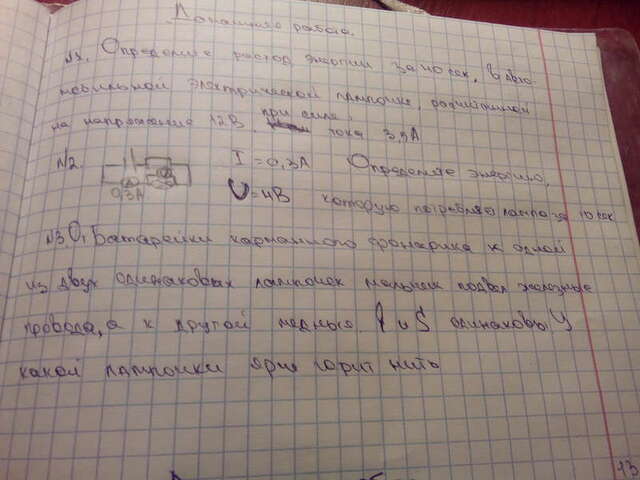 Домашняя работа.
№1. Определите расход энергии за 10 сек, в авто-
мобильной электрической лампочке, расчитанной
на напряжение 12В. при силе тока 3,5А
№2. I = 0,3А Определите энергию,
0,3А U = 4В которую потребляет лампа за 10 сек
№3. От батарейки карманного фонарика к одной
из двух одинаковых лампочек мальчик подвел железные
провода, а к другой медные. l и S одинаковы У
какой лампочки ярче горит нить
13